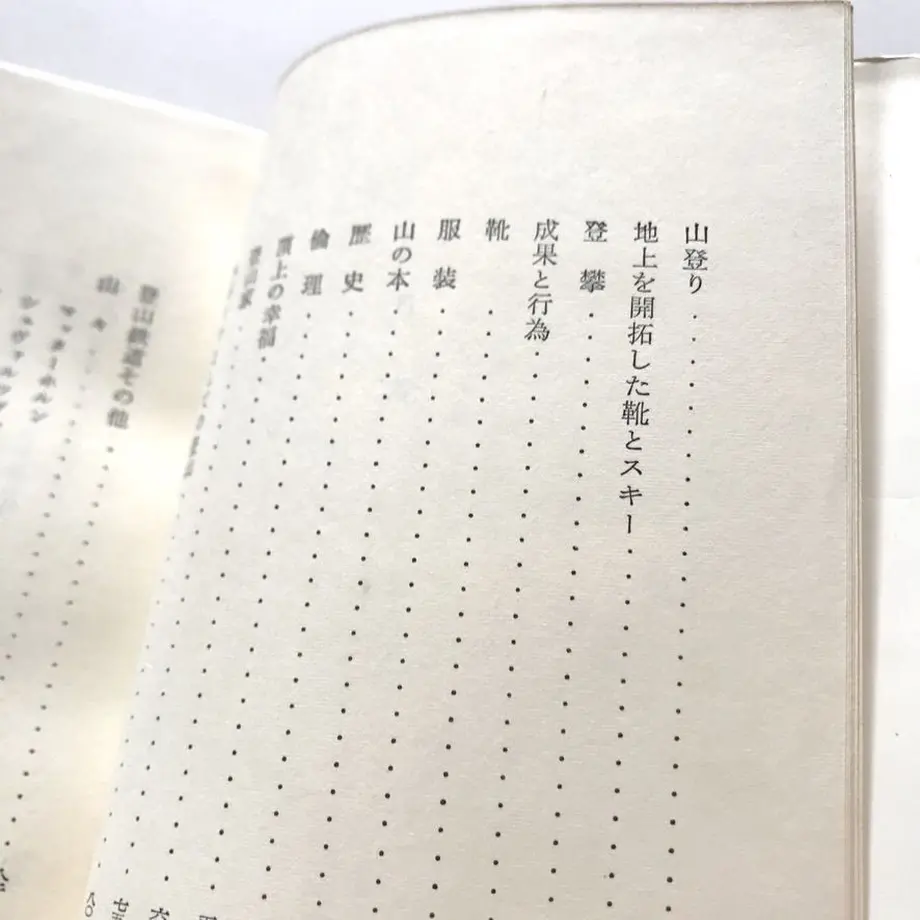 山登り
地上を開拓した靴とスキー
登攀
成果と行為
靴
服装
山の本
歴史
倫理
頂上の幸福
登山家
登山鉄道その他
山々
マッターホルン